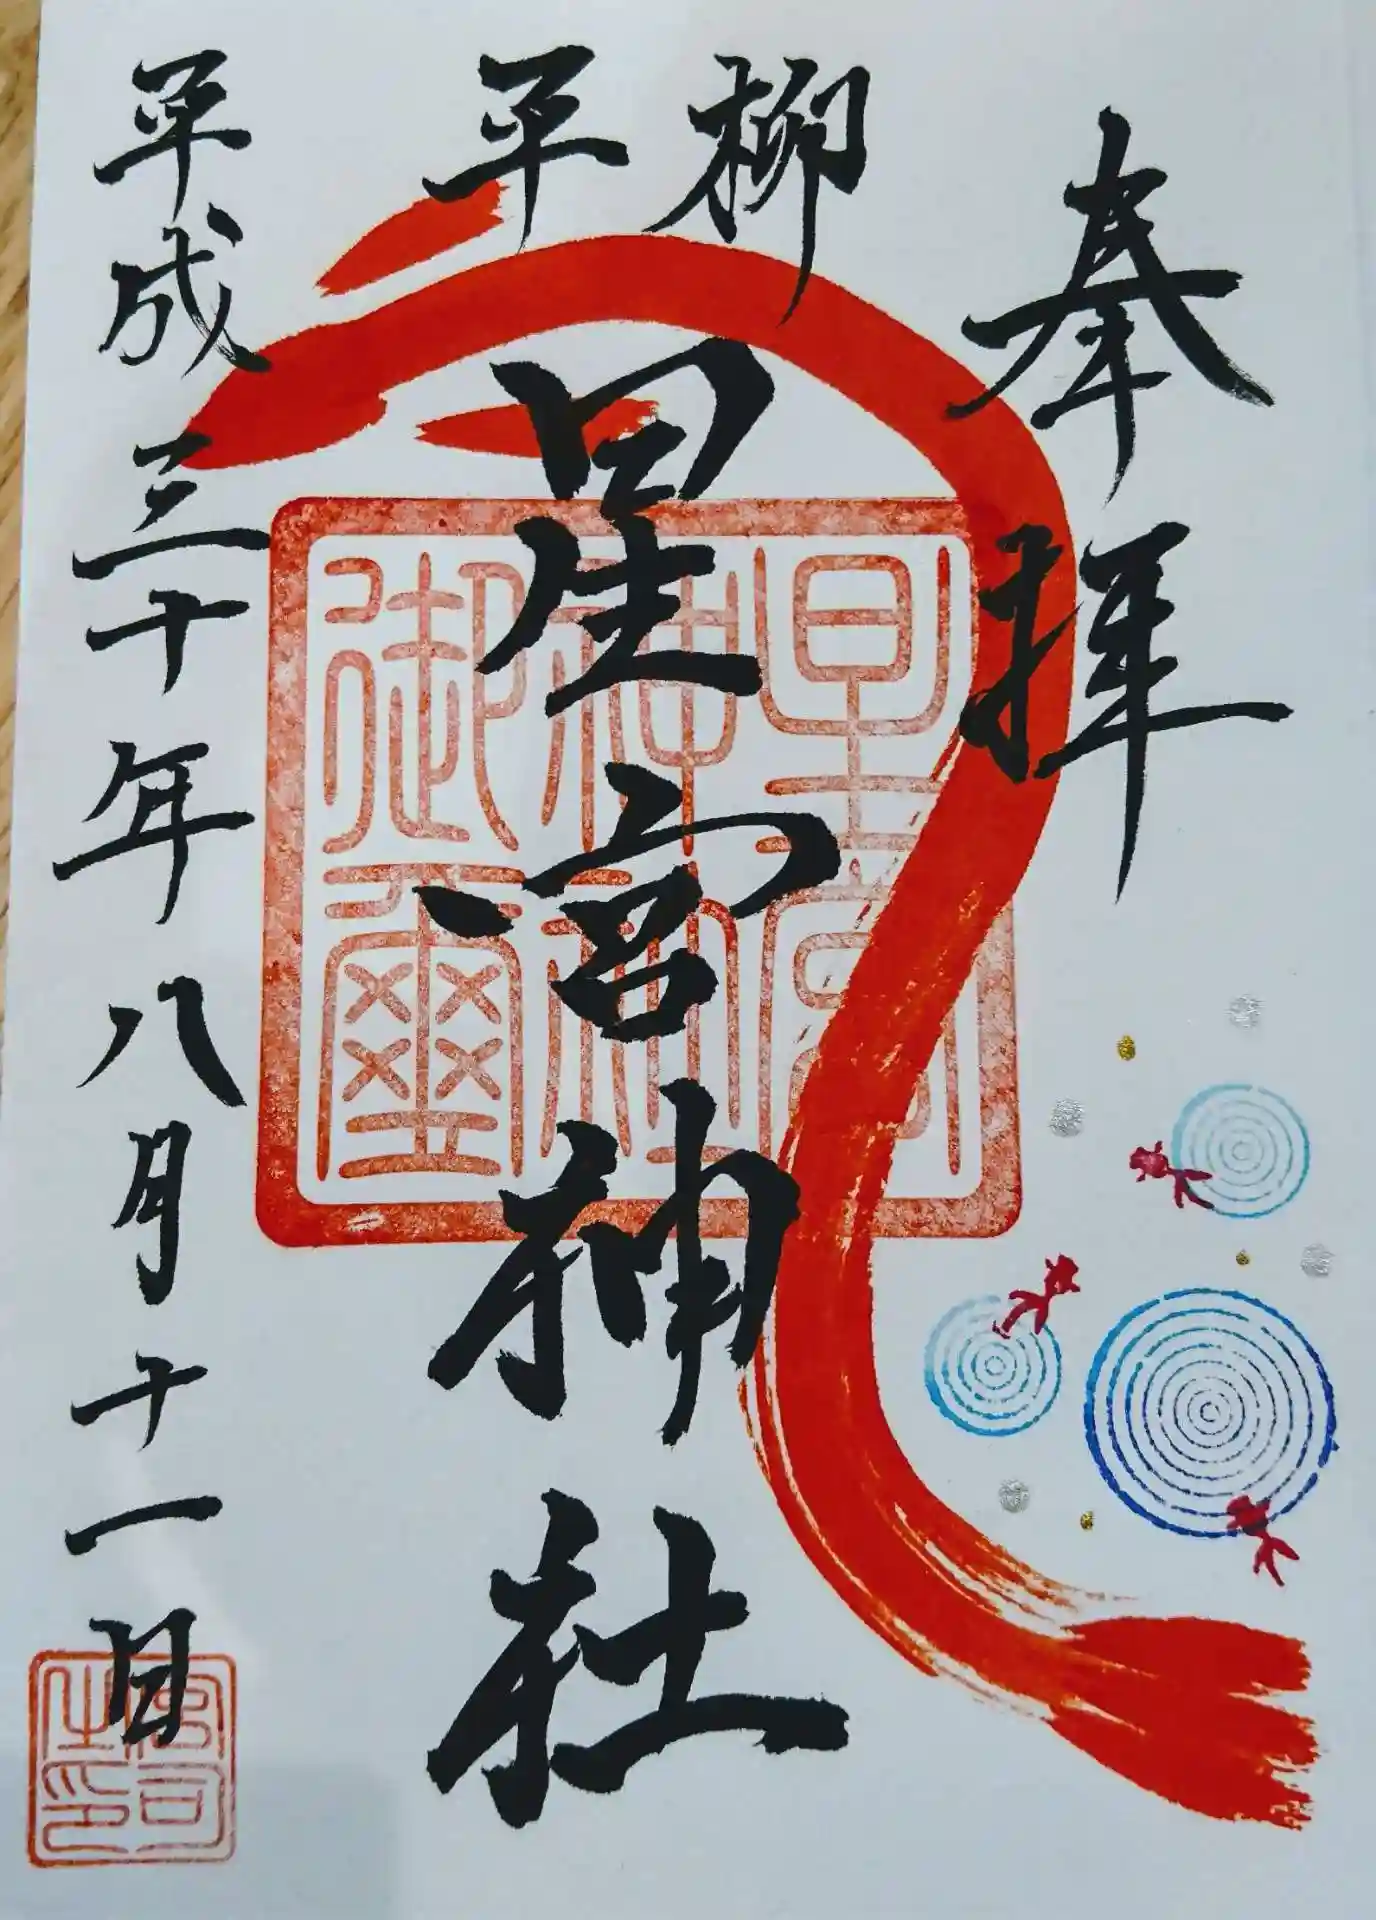 奉拝
柳平
星宮神社
星宮神社御璽
平成三十年八月十一日
宮司之印